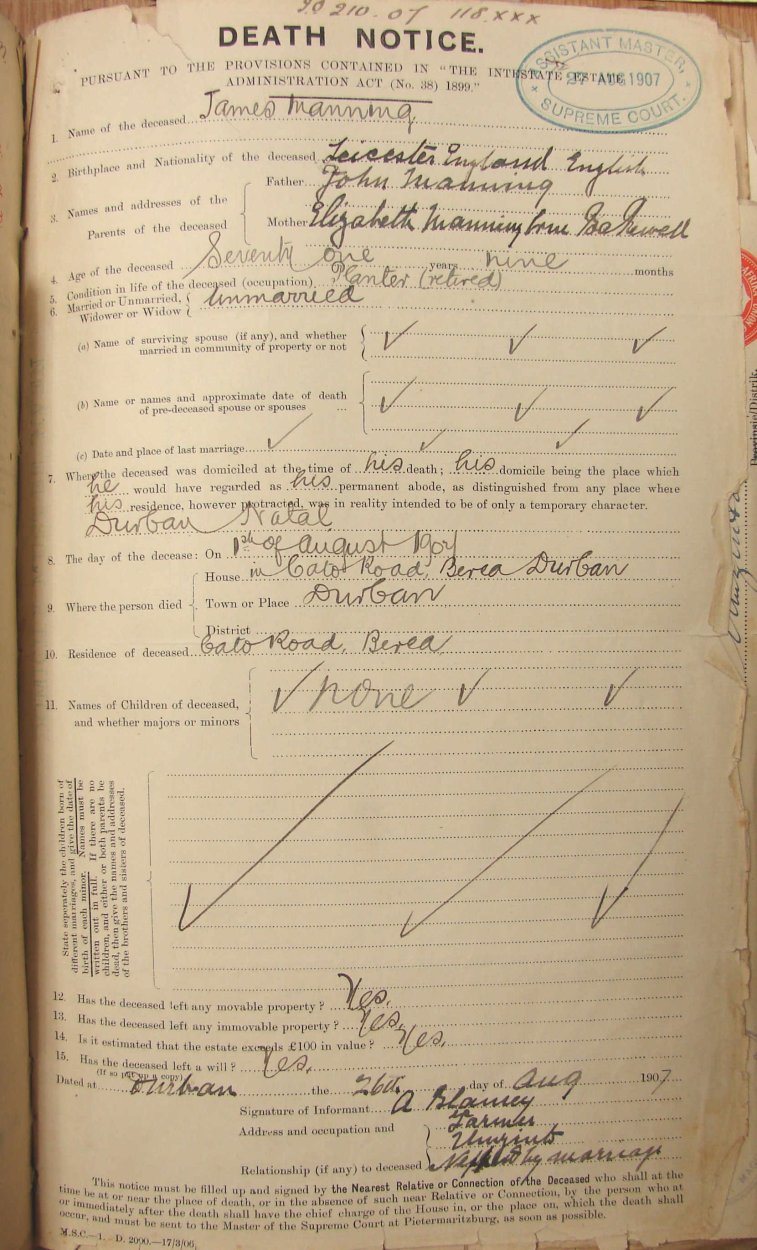 20 210.07 118.XXX
DEATH NOTICE.
PURSUANT TO THE PROVISIONS CONTAINED IN "THE INTESTATE ESTATE
ADMINISTRATION ACT (No. 38) 1899."
ASSISTANT MASTER,
27 AUG 1907
SUPREME COURT.
1. Name of the deceased James Manning
2. Birthplace and Nationality of the deceased Leicester England English
3. Names and addresses of the Parents of the deceased
Father John Manning
Mother Elizabeth Manning born Bakewell
4. Age of the deceased Seventy one years nine months
5. Condition in life of the deceased (occupation) Planter (retired)
6. Married or Unmarried, Widower or Widow Unmarried
(a) Name of surviving spouse (if any), and whether
married in community of property or not
(b) Name or names and approximate date of death
of pre-deceased spouse or spouses ...
(c) Date and place of last marriage
7. Where the deceased was domiciled at the time of his death; his domicile being the place which
he would have regarded as his permanent abode, as distinguished from any place where
his residence, however protracted, was in reality intended to be of only a temporary character.
Durban Natal
8. The day of the decease: On 1st of August 1907
9. Where the person died
House in Cato Road, Berea Durban
Town or Place Durban
District
10. Residence of deceased Cato Road, Berea
11. Names of Children of deceased,
and whether majors or minors
none
State seperately the children born of
different marriages, and give the date of
birth of each minor. Names must be
written out in full. If there are no
children, and either or both parents be
dead, then give the names and addresses
of the brothers and sisters of deceased.
12. Has the deceased left any movable property? Yes.
13. Has the deceased left any immovable property? Yes.
14. Is it estimated that the estate exceeds £100 in value? Yes.
15. Has the deceased left a will? Yes.
(If so put up a copy)
Dated at Durban the 26th day of Aug 1907
Signature of Informant A Blamey
Address and occupation and
Farmer
Umzinto
Relationship (if any) to deceased Nephew by marriage
This notice must be filled up and signed by the Nearest Relative or Connection of the Deceased who shall at the
time be at or near the place of death, or in the absence of such near Relative or Connection, by the person who at
or immediately after the death shall have the chief charge of the House in, or the place on, which the death shall
occur, and must be sent to the Master of the Supreme Court at Pietermaritzburg, as soon as possible.
M.S.C.—1. D. 2090.—17/3/06.
Provinsie/Distrik